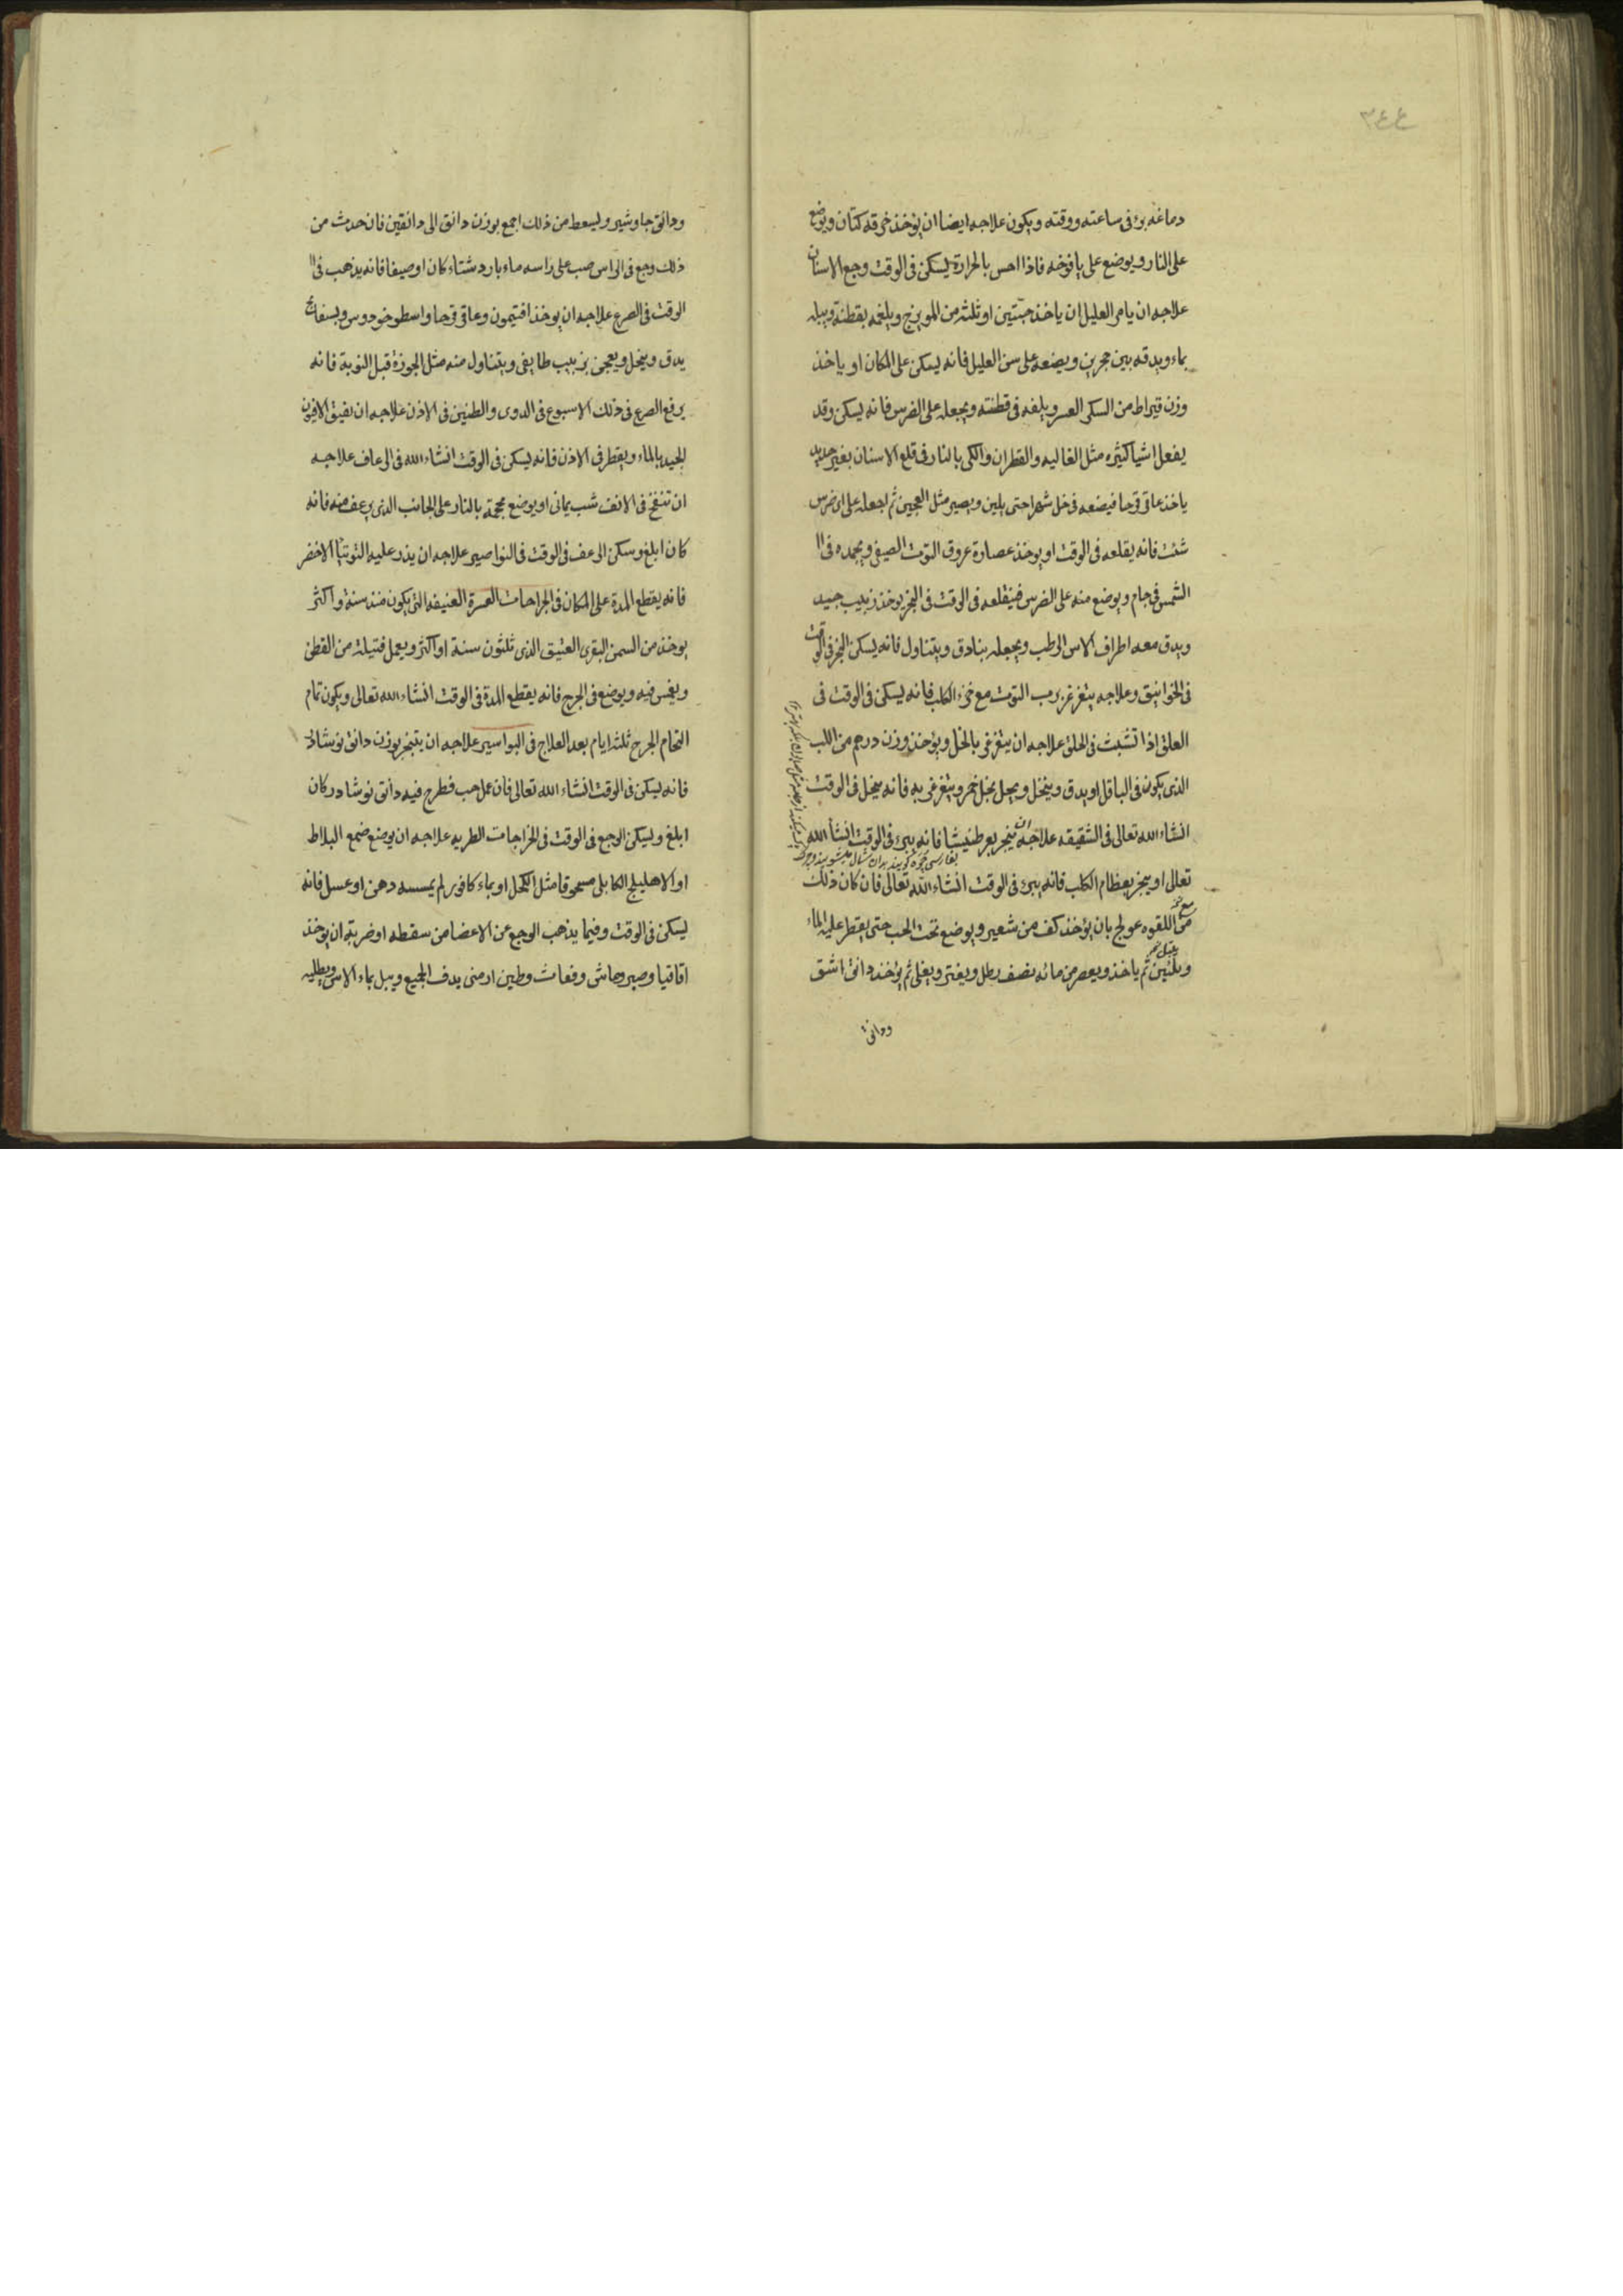 ٣٤٤
دماغه برئ فى ساعته ووقته ويكون علاجه ايضا ان يؤخذ خرقه كتان ويوضع
على النار ويوضع على يافوخه فاذا احس بالحرارة يسكن فى الوقت وجع الاسنان
علاجه ان يامر العليل ان ياخذ حبتين او ثلثه من المويزج ويلفه بقطنة ويبله
بماء ويدقه بين حجرين ويضعه على سن العليل فانه يسكن على المكان او ياخذ
وزن قيراط من السكر العسر ويلفه فى قطنته ويجعله على الضرس فانه يسكن وقد
يفعل اشيا كثيره مثل الغاليه والقطران والكى بالنار فى قلع الاسنان بغير حديد
ياخذ عاقرقرحا فيضعه فى خل شهرا حتى يلين ويصير مثل العجين ثم اجعله على اى ضرس
شئت فانه يقلعه فى الوقت او يوخذ عصارة عروق التوت الصيفى ويجمده فى ال
الشمس فى جام ويوضع منه على الضرس فيقلعه فى الوقت فى البخر يوخذ زبيب جيد
ويدق معه اطراف الاس الرطب ويجعله بنادق ويتناول فانه يسكن البخر فى الوقت
فى الخوانيق وعلاجه يتغرغر برب التوت مع خرء الكلب فانه يسكن فى الوقت فى
العلق اذا نشبت فى الحلق علاجه ان يتغرغر بالخل ويؤخذ وزن درهم من اللب
الذى يكون فى الباقل او يدق وينخل ويجل بخل خمر ويتغرغر به فانه ينحل فى الوقت
انشاء الله تعالى فى الشقيقه علاجه ان يتبخر بعرطنيشا فانه يبرئ فى الوقت انشأ الله
تعالى او يبخر بعظام الكلب فانه يبرئ فى الوقت انشاء الله تعالى فان كان ذلك
مع اللقوه عولج بان يؤخذ كف من شعير ويوضع تحت الحب حتى يقطر عليه الماء
ويلين ثم ياخذ ويعصر من مائه نصف رطل ويفتر ويغلى ثم يؤخذ دانق اشق
ودانق
ودانق جاوشير وليسعط من ذلك اجمع بوزن دانق الى دانقين فان حدث من
ذلك وجع فى الراس صب على راسه ماء بارد شتاء كان او صيفا فانه يذهب فى ال
الوقت فى الصرع علاجه ان يوخذ افتيمون وعاقرقرحا واسطوخودوس وبسفايج
يدق وينخل ويعجن بزبيب طايفى ويتناول منه مثل الجوزة قبل النوبة فانه
يرفع الصرع فى ذلك الاسبوع فى الدوى والطنين فى الاذن علاجه ان يفيق الافيون
الجيد بالماء ويقطر فى الاذن فانه يسكن فى الوقت انشاء الله فى الرعاف علاجه
ان تنفخ فى الانف شب يمانى او يوضع محجمة بالنار على الجانب الذى يرعف منه فانه
كان ابلغ وسكن الرعف فى الوقت فى النواصير علاجه ان يذر عليه التوتيا الاخضر
فانه يقطع المدة على المكان فى الجراحات العسرة العنيفه التى يكون منذ سنة واكثر
يوخذ من السمن البقرى العتيق الذى ثلثون سنة او اكثر ويعمل فتيلة من القطن
ويغمس فيه ويوضع فى الجرح فانه يقطع المدة فى الوقت انشاء الله تعالى ويكون تمام
التحام الجرح ثلثه ايام بعد العلاج فى البواسير علاجه ان يتبخر بوزن دانق نوشادر
فانه يسكن فى الوقت انشاء الله تعالى فان عمل حب فطرح فيه دانق نوشادر كان
ابلغ وليسكن الوجع فى الوقت فى الخراجات الطريه علاجه ان يوضع صمغ البلاط
او الاهليلج الكابلى مسحوقا مثل الكحل او بماء كافور لم يمسسه دهن او عسل فانه
ليسكن فى الوقت وفيما يذهب الوجع عن الاعضا من سقطه او ضربة ان يوخذ
اقاقيا وصبر وماش وفغاث وطين ارمنى يدف الجميع ويبل بماء الاس ويطليه